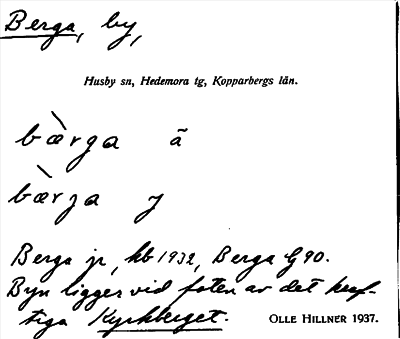 Berga, by,
Husby sn, Hedemora tg, Kopparbergs län.
bæ̀rga ã
bæ̀rga y
Berga jr, kb 1932, Berga G 90.
Byn ligger vid foten av det kraf-
tiga Kyrkberget.
OLLE HILLNER 1937.